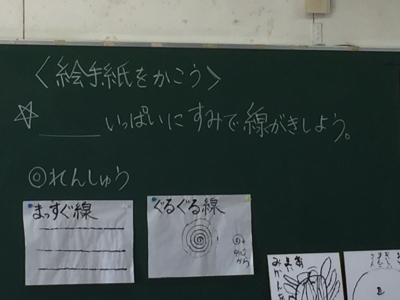 〈絵手紙をかこう〉
☆____いっぱいにすみで線がきしよう。
◎れんしゅう
まっすぐ線
ぐるぐる線